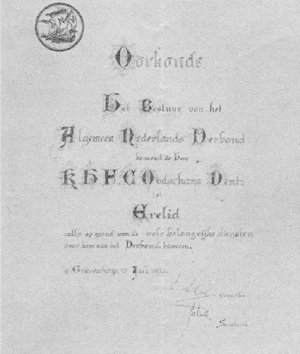 Oorkonde
Het Bestuur van het
Algemeen Nederlands Verbond
benoemt de Heer
Oudschans Dentz
tot
Erelid
zulks op grond van de vele belangrijke diensten
door hem aan het Verbond bewezen.
's Gravenhage, Juli